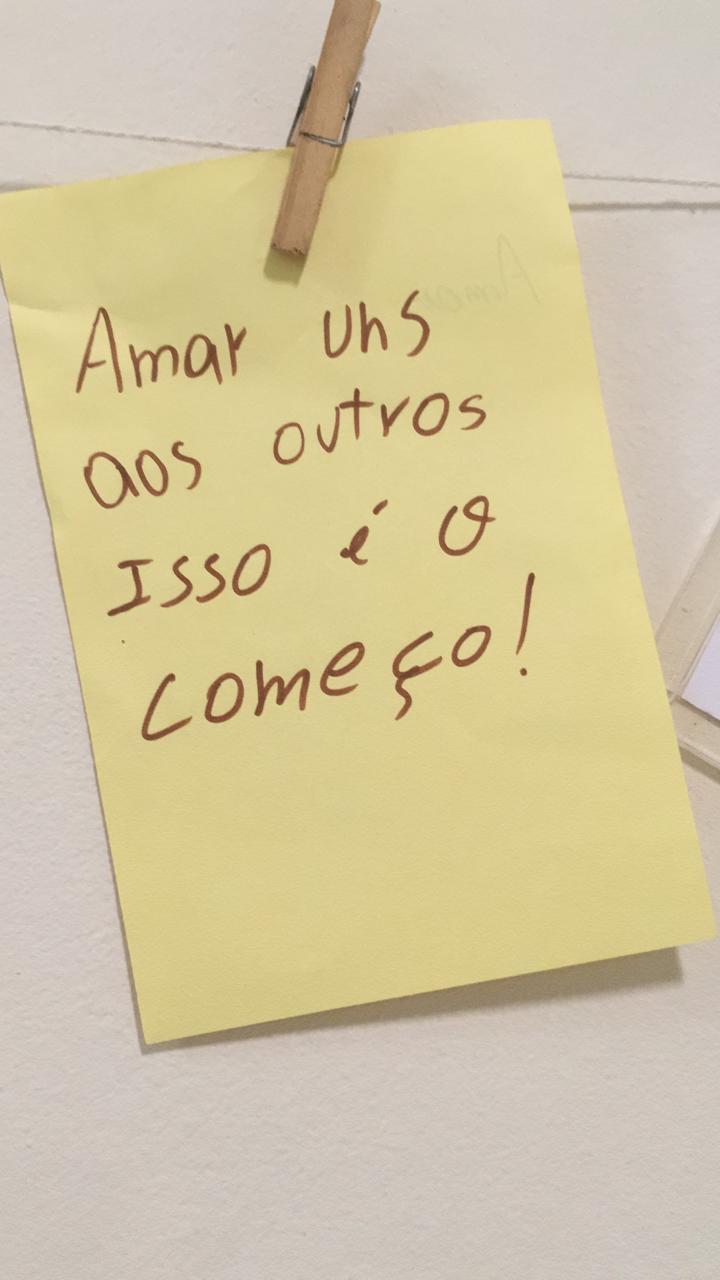 Amar uns
aos outros
Isso é o
começo!